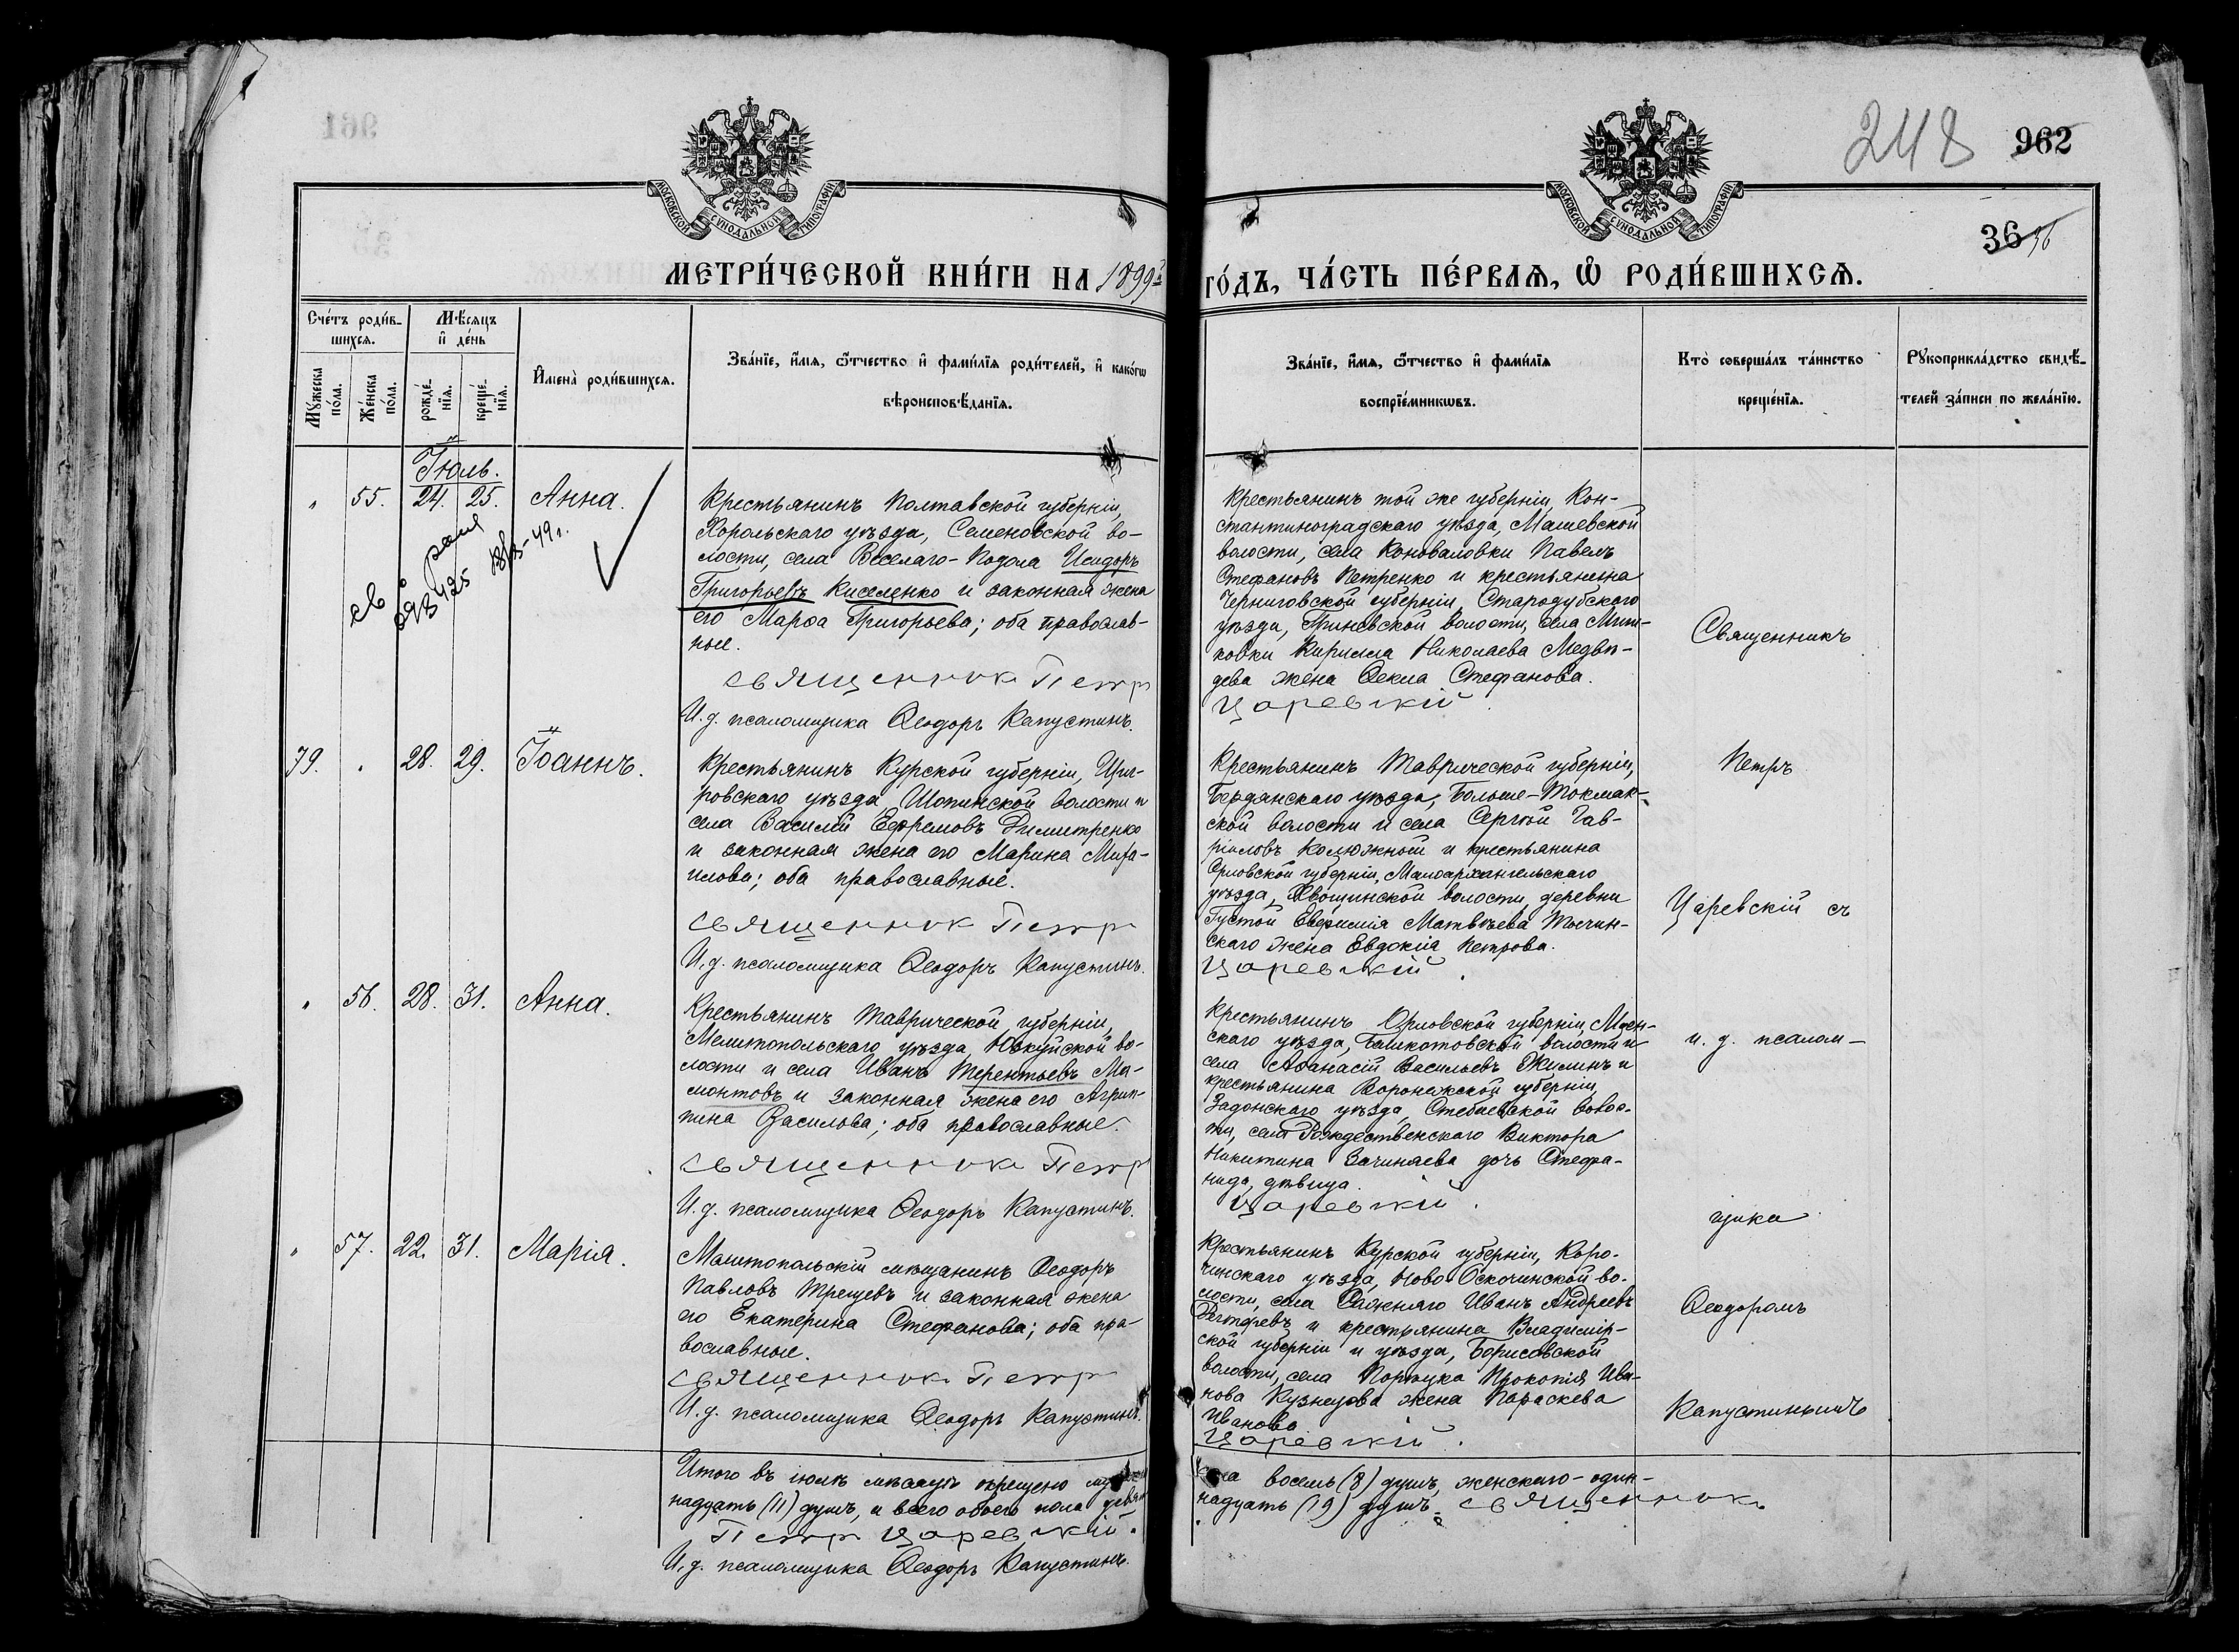 961
МОСКОВСКОЙ СѴНОДАЛЬНОЙ ТИПОГРАФІИ
МОСКОВСКОЙ СѴНОДАЛЬНОЙ ТИПОГРАФІИ
248 962
36
МЕТРИ́ЧЕСКОЙ КНИ́ГИ НА 1899й
ГО́ДЪ, ЧА́СТЬ ПЕ́РВАѦ, Ѡ҆ РОДИ́ВШИХСѦ.
Сче́тъ роди́в-
шихсѧ.
Мѣ́сѧцъ
и҆ де́нь
Мꙋ́жеска
по́ла.
Же́нска
по́ла.
рожде́-
нїѧ.
креще́-
нїѧ.
И҆мена̀ роди́вшихсѧ.
Зва́нїе, и҆́мѧ, ѻ҆́тчество и҆ фами́лїѧ роди́телей, и҆ како́гѡ
вѣроисповѣ́данїѧ.
Зва́нїе, и҆́мѧ, ѻ҆́тчество и҆ фами́лїѧ
воспрїе́мникѡвъ.
Кто̀ соверша́лъ та́инство
креще́нїѧ.
Рꙋкоприкла́дство свидѣ́-
телей за́писи по жела́нїю.
Іюль.
55. 24. 25. Анна.
Крестьянинъ Полтавской губерніи,
Хорольскаго уѣзда, Семеновской во-
лости, села Веселаго-Подола Исидоръ
Григорьевъ Киселенко и законная жена
его Марѳа Григорьева; оба православ-
ные.
Священник Петр
И. д. псаломщика Ѳеодоръ Капустинъ.
Крестьянинъ той же губерніи, Кон-
стантиноградскаго уѣзда, Машевской
волости, села Коноваловки Павелъ
Стефановъ Петренко и крестьянина
Черниговской губерніи, Стародубскаго
уѣзда, волости, села
ковки Кирилла Николаева Медвѣ-
дева жена Ѳекла Стефанова.
Царевскій
Священникъ
79. 28. 29. Іоаннъ.
Крестьянинъ Курской губерніи, Щиг-
ровскаго уѣзда, волости и
села Василій Ефремовъ Димитренко
и законная жена его Марина Миха-
илова; оба православные.
Священник Петр
И. д. псаломщика Ѳеодоръ Капустинъ.
Крестьянинъ Таврической губерніи,
Бердянскаго уѣзда, Больше-Токмак-
ской волости и села Сергѣй Гав-
ріиловъ и крестьянина
Орловской губерніи, Малоархангельскаго
уѣзда, волости, деревни
Густой Евфимія Матвѣева
скаго жена Евдокія Петрова.
Царевскій
Петръ
Царевскій съ
56. 28. 31. Анна.
Крестьянинъ Таврической губерніи,
Мелитопольскаго уѣзда, Юзкуйской во-
лости и села Иванъ Терентьевъ Ма-
монтовъ и законная жена его Агрип-
пина Василова; оба православные.
Священник Петр
И. д. псаломщика Ѳеодоръ Капустинъ.
Крестьянинъ Орловской губерніи, Мцен-
скаго уѣзда, волости и
села Аѳанасій Васильевъ Жилинъ и
крестьянина Воронежской губерніи,
Задонскаго уѣзда, Стебаевской волос-
ти, села Рождественскаго Виктора
Никитина Зачиняева дочь Стефа-
нида, дѣвица.
Царевскій.
и. д. псалом-
щика
57. 22. 31. Марія.
Мелитопольскій мѣщанинъ Ѳеодоръ
Павловъ Трещевъ и законная жена
его Екатерина Стефанова; оба пра-
вославные.
Священник Петр
И. д. псаломщика Ѳеодоръ Капустинъ.
Крестьянинъ Курской губерніи, Коро-
чанскаго уѣзда, Ново-Оскочинской во-
лости, села Иванъ Андреевъ
и крестьянина Владимір-
ской губерніи и уѣзда, Борисовской
волости, села Прокопія Ива-
нова Кузнецова жена Параскева
Иванова.
Царевскій.
Ѳеодоромъ
Капустинымъ
Итого въ іюлѣ мѣсяцѣ крещено
восемь (8) душъ, женскаго - один-
надцать (11) душъ, а всего обоего пола
надцать (19) душъ. Священник
Петр Царевскій.
И. д. псаломщика Ѳеодоръ Капустинъ.